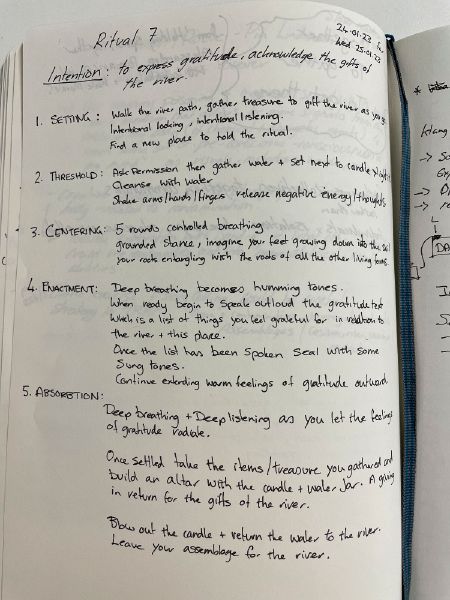 Ritual 7
24.01.23 for
Wed 25.01.23
Intention: to express gratitude, acknowledge the gifts of
the river.
1. SETTING: Walk the river path, gather treasure to gift the river as you go
Intentional looking, intentional listening.
Find a new place to hold the ritual.
2. THRESHOLD: Ask Permission then gather water + set next to candle +
Cleanse with water
Shake arms/hands/fingers release negative energy/thoughts
3. CENTERING: 5 rounds controlled breathing
grounded stance, imagine your feet growing down into the soil
your roots entangling with the roots of all the other living
4. ENACTMENT: Deep breathing becomes humming tones.
When ready begin to speak outloud the gratitude text
which is a list of things you feel grateful for in relation to
the river + this place.
Once the list has been spoken seal with some
Sung tones.
Continue extending warm feelings of gratitude outward
5. ABSORBTION:
Deep breathing + Deep listening as you let the feelings
of gratitude radiate.
Once settled take the items/treasure you gathered and
build an altar with the candle + water jar. A giving
in return for the gifts of the river.
Blow out the candle + return the water to the river.
Leave your assemblage for the river.